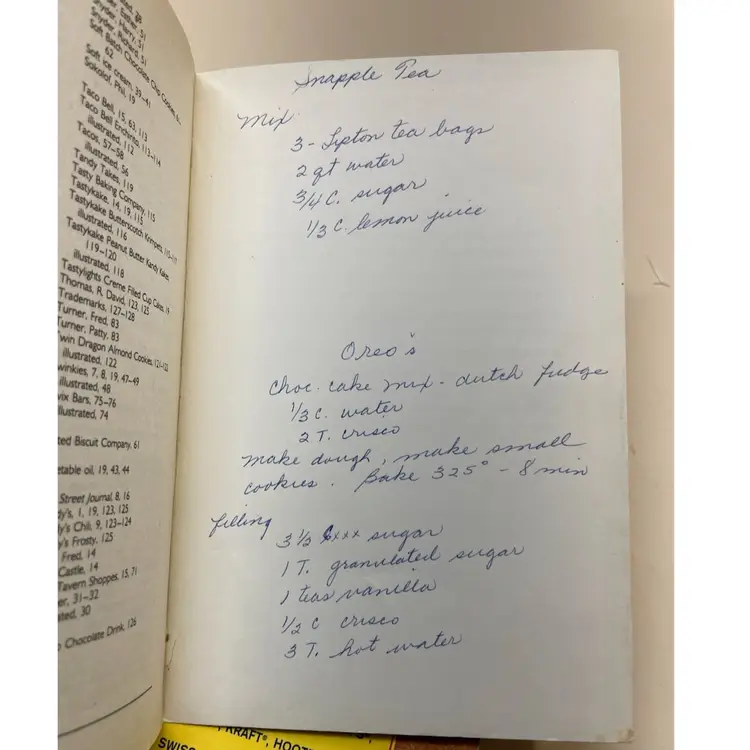 Snyder, Harry, 51
Snyder, Richard, 51
Soft Batch Chocolate Chip Cookies,
62
Soft ice cream, 39–41
Sokolof, Phil, 19
Taco Bell, 15, 63, 113
Taco Bell Enchirito, 113–114
illustrated, 112
Tacos, 57–58
illustrated, 56
Tandy Takes, 119
Tasty Baking Company, 115
Tastykake, 14, 19, 115
Tastykake Butterscotch Krimpets, 115–117
illustrated, 116
Tastykake Peanut Butter Kandy Kakes,
119–120
illustrated, 118
Tastylights Creme Filled Cup Cakes,
Thomas, R. David, 123, 125
Trademarks, 127–128
Turner, Fred, 83
Turner, Patty, 83
win Dragon Almond Cookies, 121–122
illustrated, 122
winkies, 7, 8, 19, 47–49
illustrated, 48
wix Bars, 75–76
llustrated, 74
ted Biscuit Company, 61
etable oil, 19, 43, 44
Street Journal, 8, 16
dy's, 1, 19, 123, 125
y's Chili, 9, 123–124
y's Frosty, 125
Fred, 14
Castle, 14
Tavern Shoppes, 15, 71
er, 31–32
ated, 30
o Chocolate Drink, 126
Snapple Tea
Mix
3 - Lipton tea bags
2 qt water
3/4 C. sugar
1/3 C. lemon juice
Oreo's
Choc. cake mix - dutch fudge
1/3 C. water
2 T. crisco
Make dough, make small
cookies. Bake 325° - 8 min
filling
3 1/2 xxx sugar
1 T. granulated sugar
1 teas vanilla
1/2 C crisco
3 T. hot water
KRAFT®, HOOT
SWISS